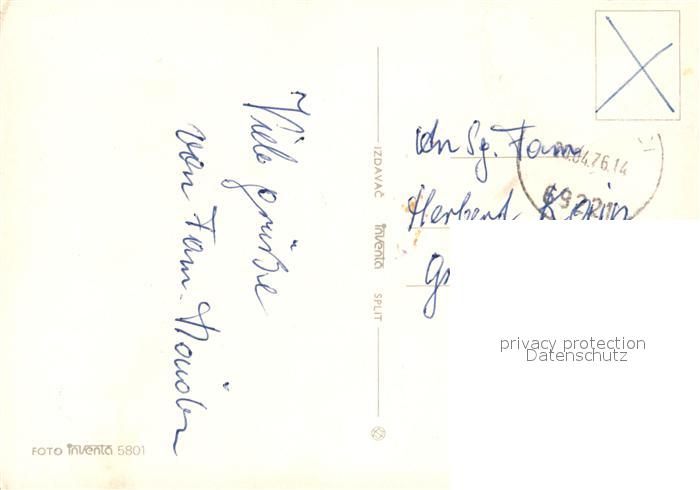 Viele grüße
von Fam.
An Sg. Fam
Herbert
IZDAVAČ inventa SPLIT
FOTO inventa 5801
.04.76.14
privacy protection
Datenschutz